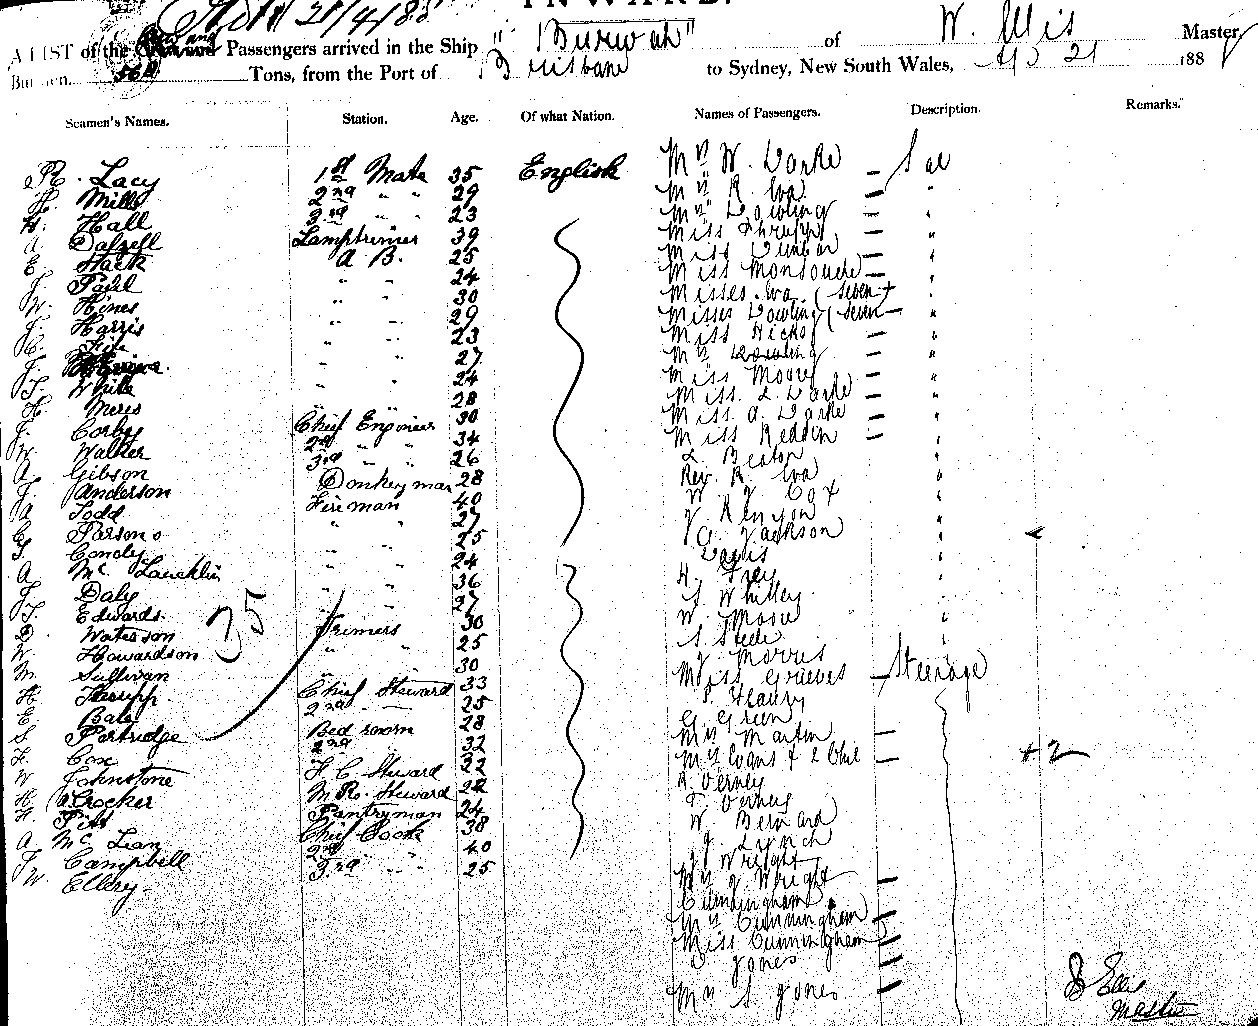 21/4/88
INWARD.
A LIST of the and Passengers arrived in the Ship "Burwah" of W. Ellis Master,
Burden, 562 Tons, from the Port of Brisbane to Sydney, New South Wales, Ap 21 188
Seamen's Names. Station. Age. Of what Nation. Names of Passengers. Description. Remarks.
R. Lacy 1st Mate 35 English
H. Mills 2nd " " 29
H. Hall 3rd " " 23
A. Dalzell Lamptrimer 39
E. Hack A B. 25
J. Paul " " 24
W. Hines " " 30
J. Harris " " 29
" " 23
" " 27
T. White " " 24
H. Meres " " 28
J. Corby Chief Engineer 30
W. Walker 2nd " " 34
A. Gibson 3rd " " 26
J. Anderson Donkeyman 28
A. Todd Fireman 40
C. Parsons " " 27
T. Condy " " 25
A. Mc Lauchlin " " 24
J. Daly " " 36
T. Edwards " " 27
D. Waterson Trimers 30
W. Howardson " " 25
M. Sullivan 30
H. Thrupp Chief Steward 33
E. Bale 2nd " 25
S. Partridge Bed room 28
F. Cox 2nd " 32
W. Johnstone F. C. Steward 22
H. Crocker M. R. Steward 28
F. Pitt Pantryman 24
A. Mc Lean Chief Cook 38
J. Campbell 2nd " " 40
W. Ellery 3rd " " 25
35
Mrs W. Darke Sal
Mrs R. Iva
Mrs Dowling
Miss Thrupp
Miss Dunbar
Miss
Misses Iva (seven
Misses Dowling (seven
Miss Hicks
Mrs Dowling
Miss Moore
Miss L. Darke
Miss A. Darke
Miss Reddin
L. Beaton
Rev. R. Iva
W. J. Cox
J. Kenyon
A. Jackson
Davis
H. Frey
S. Whitley
W.
S. Steele
J. Morris
Miss Grieves Steerage
P. Fleaury
G. Green
Mrs Martin
Mrs Evans & 2 Chil +2
R. Verney
T. Verney
W. Bernard
J. Lynch
J. Wright
Mrs J. Wright
Cunningham
Mrs Cunningham
Miss Cunningham
Jones
Mrs S. Jones
Ellis
Master